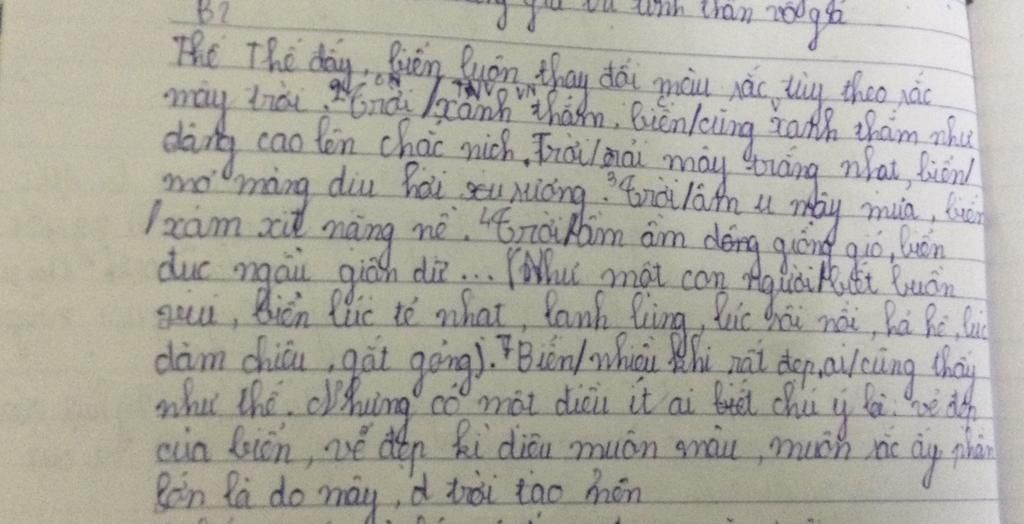 B2
giá và tinh thần vô giá
Thế Thế đấy, biển luôn thay đổi màu sắc tùy theo sắc
mây trời. 2Trời/xanh thẳm, biển/cũng xanh thẳm như
dâng cao lên chắc nịch. Trời/rải mây trắng nhạt, biển/
mơ màng dịu hơi sương. 3Trời/âm u mây mưa, biển
/xám xịt nặng nề. 4Trời/ầm ầm dông giông gió, biển
đục ngầu giận dữ... (Như một con người/biết buồn
vui, biển lúc tẻ nhạt, lạnh lùng, lúc sôi nổi, hả hê, lúc
đăm chiêu, gắt gỏng). 7Biển/nhiều khi rất đẹp, ai/cũng thấy
như thế. Nhưng có một điều ít ai biết chú ý là: vẻ đẹp
của biển, vẻ đẹp kì diệu muôn màu, muôn sắc ấy phần
lớn là do mây, trời tạo nên